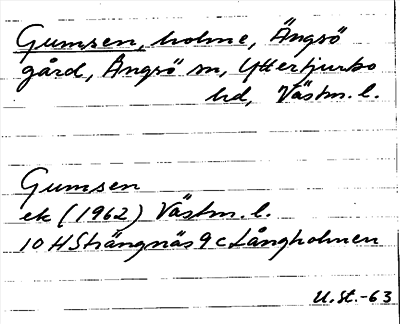 Gumsen, holme, Ängsö
gård, Ängsö sn, Yttertjurbo
hd, Västm. l.
Gumsen
ek (1962) Västm. l.
10 H Strängnäs 9 c Långholmen
U.St.-63